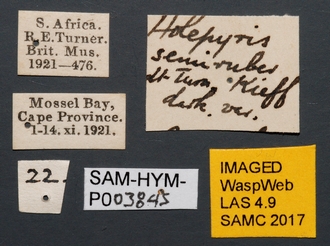 S. Africa.
R.E. Turner.
Brit. Mus.
1921—476.
Mossel Bay,
Cape Province.
1-14. xi. 1921.
22.
SAM-HYM-
P003845
Holepyris
semiruber
Kieff
det. Turn.
dark. var.
IMAGED
WaspWeb
LAS 4.9
SAMC 2017